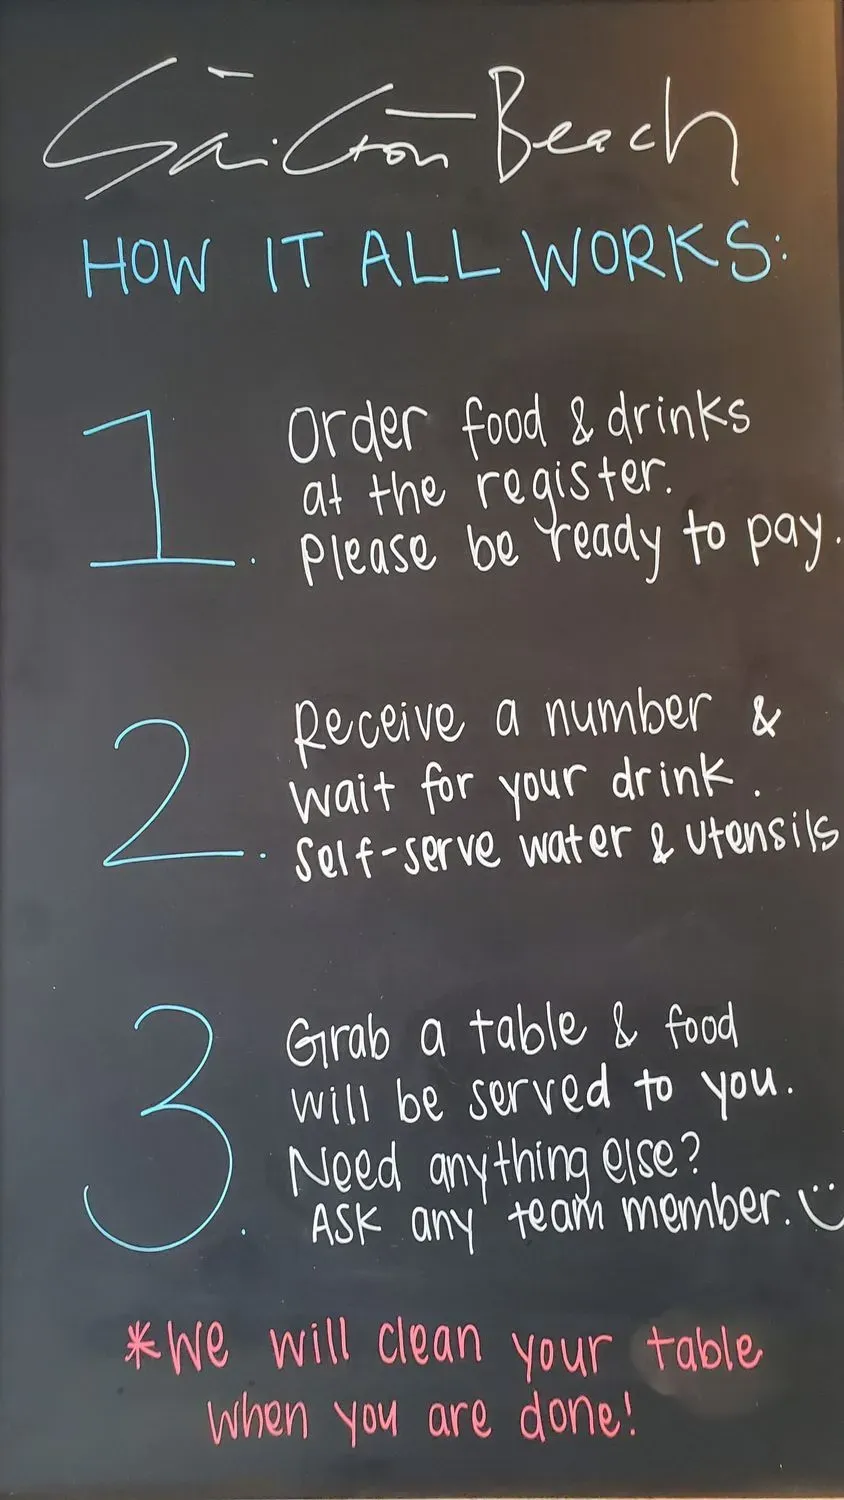 Sài Gòn Beach
HOW IT ALL WORKS:
1. Order food & drinks
at the register.
Please be ready to pay.
2. Receive a number &
wait for your drink.
Self-serve water & utensils
3. Grab a table & food
will be served to you.
Need anything else?
ASK any team member.
*We will clean your table
when you are done!